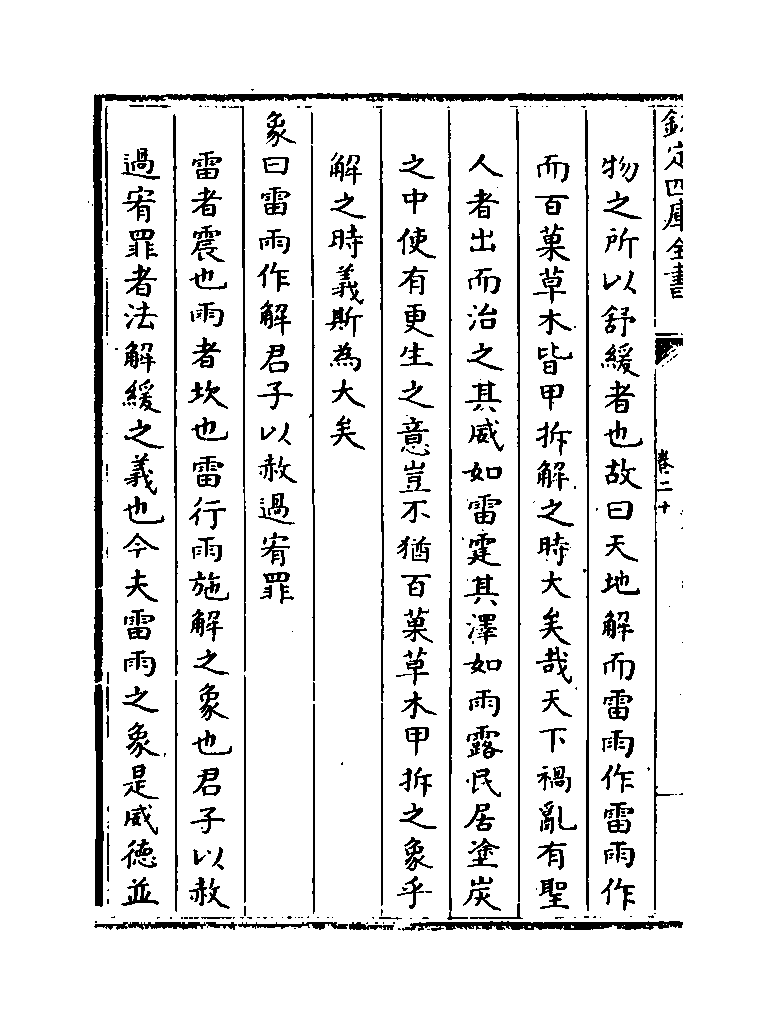 欽定四庫全書
卷二十
物之所以舒緩者也故曰天地解而雷雨作雷雨作
而百菓草木皆甲拆解之時大矣哉天下禍亂有聖
人者出而治之其威如雷霆其澤如雨露民居塗炭
之中使有更生之意豈不猶百菓草木甲拆之象乎
解之時義斯為大矣
象曰雷雨作解君子以赦過宥罪
雷者震也雨者坎也雷行雨施解之象也君子以赦
過宥罪者法解緩之義也今夫雷雨之象是威德並